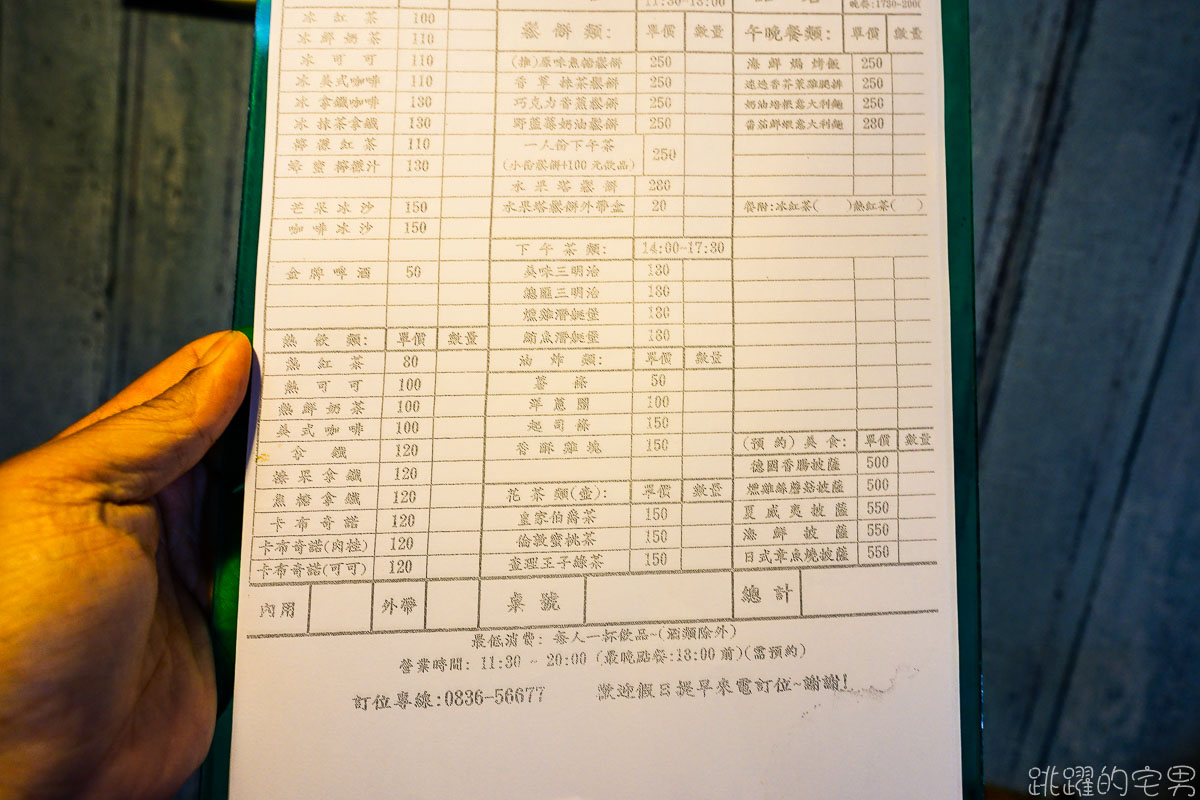 冰紅茶 100
冰鮮奶茶 110
冰可可 110
冰美式咖啡 110
冰拿鐵咖啡 130
冰抹茶拿鐵 130
檸檬紅茶 110
蜂蜜檸檬汁 130
芒果冰沙 150
咖啡冰沙 150
金牌啤酒 50
熱飲類: 單價 數量
熱紅茶 80
熱可可 100
熱鮮奶茶 100
美式咖啡 100
拿鐵 120
榛果拿鐵 120
焦糖拿鐵 120
卡布奇諾 120
卡布奇諾(肉桂) 120
卡布奇諾(可可) 120
11:30-18:00
鬆餅類: 單價 數量
(推)原味焦糖鬆餅 250
香草抹茶鬆餅 250
巧克力香蕉鬆餅 250
野藍莓奶油鬆餅 250
一人份下午茶
(小份鬆餅+100元飲品) 250
水果塔鬆餅 280
水果塔鬆餅外帶盒 20
下午茶類: 14:00-17:30
美味三明治 130
總匯三明治 180
燻雞潛艇堡 180
鮪魚潛艇堡 180
油炸類: 單價 數量
薯條 50
洋蔥圈 100
起司條 150
香酥雞塊 150
花茶類(壺): 單價 數量
皇家伯爵茶 150
倫敦蜜桃茶 150
查理王子綠茶 150
晚餐:1730-2000
午晚餐類: 單價 數量
海鮮焗烤飯 250
迷迭香芬萊雞腿排 250
奶油培根意大利麵 250
番茄鮮蝦意大利麵 280
餐附:冰紅茶( )熱紅茶( )
(預約)美食: 單價 數量
德國香腸披薩 500
燻雞絲蘑菇披薩 500
夏威夷披薩 550
海鮮披薩 550
日式章魚燒披薩 550
內用 外帶 桌號 總計
最低消費: 每人一杯飲品~(酒類除外)
營業時間: 11:30 ~ 20:00 (最晚點餐:18:00前)(需預約)
訂位專線:0836-56677 歡迎假日提早來電訂位~謝謝!
跳躍的宅男